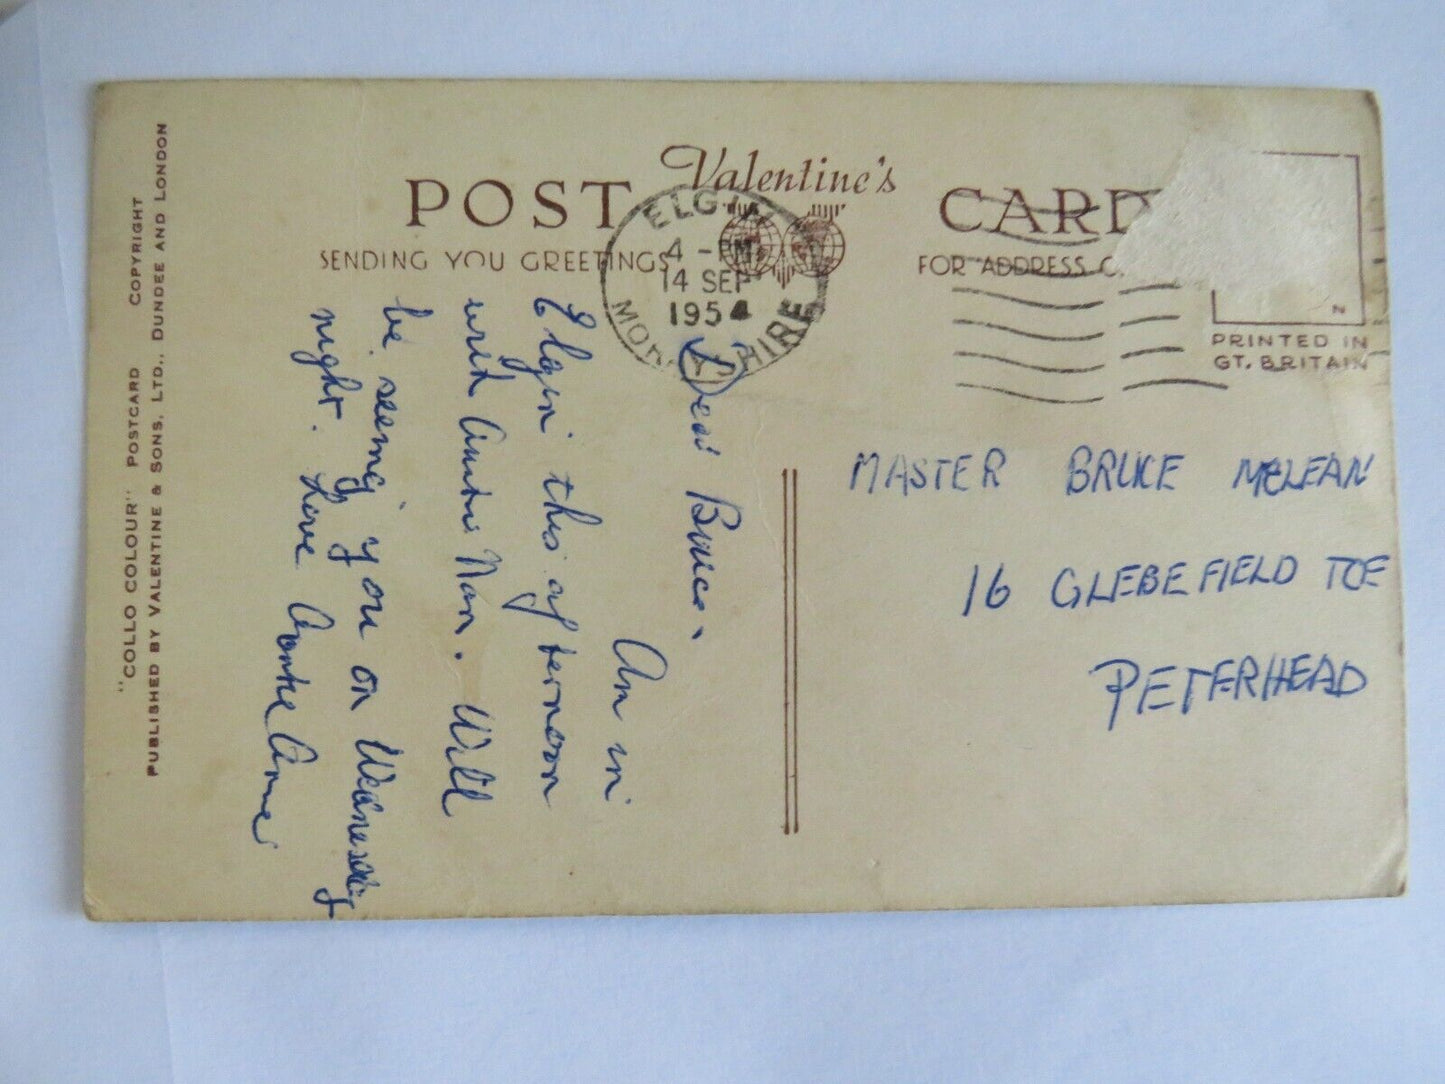 "COLLO COLOUR" POSTCARD COPYRIGHT
PUBLISHED BY VALENTINE & SONS, LTD., DUNDEE AND LONDON
Valentine's
POST CARD
SENDING YOU GREETINGS
FOR ADDRESS
ELGIN
4 - PM
14 SEP
1954
MORAYSHIRE
N
PRINTED IN
GT. BRITAIN
Dear Bruce,
Am in
Elgin this afternoon
with Auntie Nan. Will
be seeing you on Wednesday
night. Love Auntie Anne
MASTER BRUCE McLEAN
16 GLEBEFIELD TCE
PETERHEAD